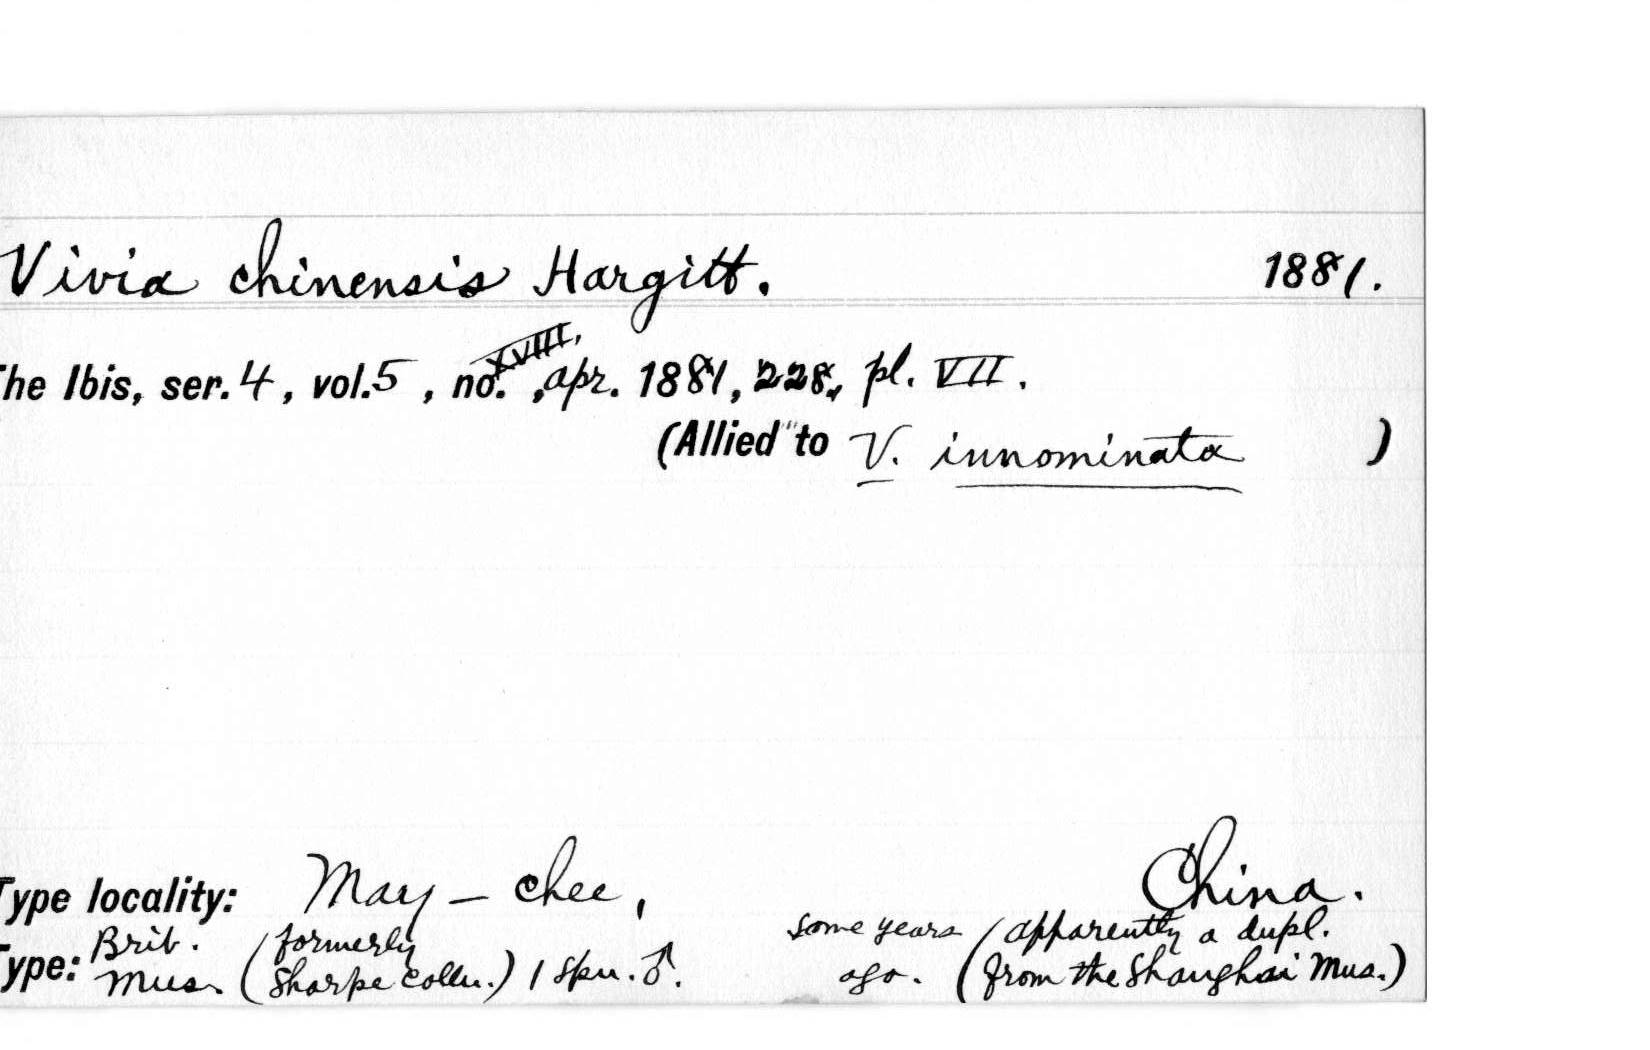 Vivia chinensis Hargitt. 1881.
The Ibis, ser. 4, vol. 5, no. XVIII, apr. 1881, 228, pl. VII.
(Allied to V. innominata )
Type locality: May-chee, China.
Type: Brit. Mus. (formerly Sharpe colln.) 1 spn. ♂. some years ago. (apparently a dupl. from the Shanghai Mus.)